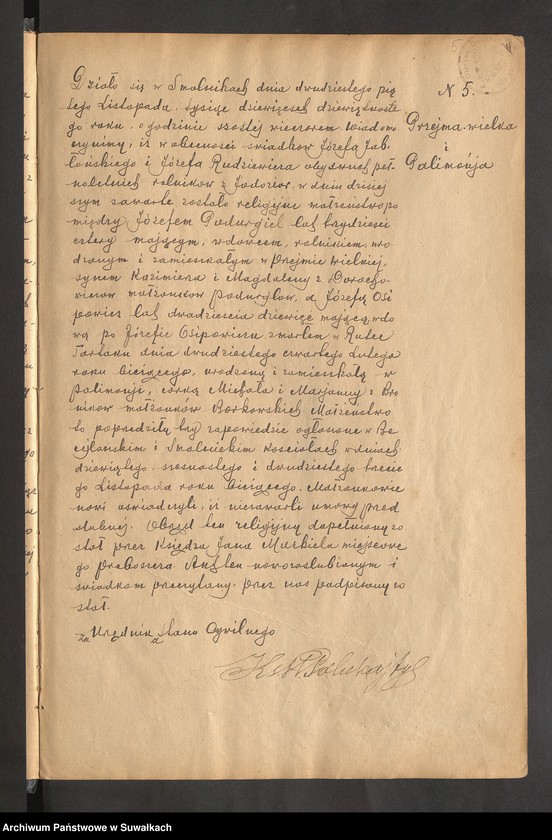 Działo się w Smolnikach dnia dwudziestego pią
tego Listopada, tysiąc dziewięcset dziewiętnaste
go roku, o godzinie szostej wieczorem. Wiadomo
czynimy, iż w obecności świadków Józefa Jab-
łońskiego i Józefa Rudziewicza obydwuch peł-
noletnich rolników z Jodozior, w dniu dzisiej
szym zawarte zostało religijne małżeństwo po
między Józefem Podurgiel lat trzydzieści
cztery mającym, wdowcem, rolnikiem, uro
dzonym i zamieszkałym w Przejmie Wielkiej,
synem Kazimierza i Magdaleny z Doroch
wiczów małżonków Podurglów, a Józefą Osi
powicz lat dwadzieścia dziewięć mającą, wdo
wą po Józefie Osipowiczu zmarłem w Rutce
Tartaku dnia dwudziestego czwartego Lutego
roku bieżącego, urodzoną i zamieszkałą w
Polimonji, córką Michała i Marjanny z Bro
nicow małżonków Borkowskich. Małżeństwo
to poprzedziły trzy zapowiedzie ogłoszone w Be
cejłańskim i Smolnickim Kosciołach w dniach:
dziewiątego, szesnastego i dwudziestego trzecie
go Listopada roku bieżącego. Małżonkowie
nowi oświadczyli, iż niezawarli umowy przed
ślubnej. Obrzęd ten religijny dopełniony zo
stał przez Księdza Jana Markiela miejscowe
go proboszcza. Akt ten nowozaślubionym i
świadkom przeczytany, przez nas podpisany zo
stał.
za Urzędnika Stanu Cywilnego
Ks.
N 5.
Przejma-wielka
i
Polimonja
Archiwum Państwowe w Suwałkach